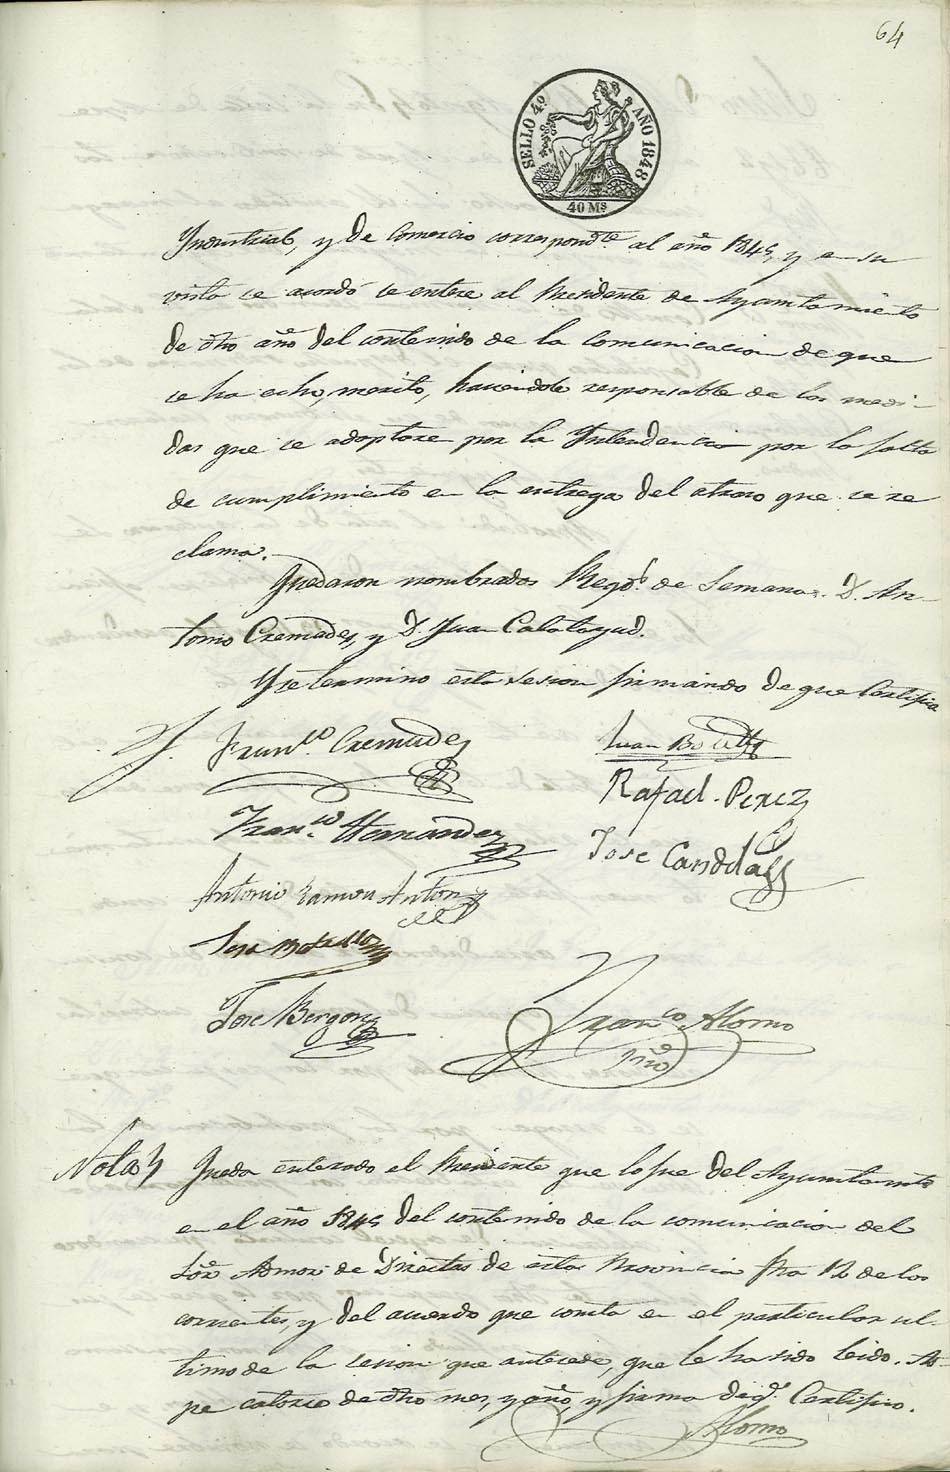 64
SELLO 4º AÑO 1848
40 Ms
Industrial, y de Comercio correspondte al año 1845, y en su
vista se acordó se entere al Presidente de Ayuntamiento
de dho año del contenido de la Comunicacion de que
se ha echo, merito, haciendole responsable de las medi-
das que se adoptare por la Intendencia por la falta
de cumplimiento en la entrega del atraso que se re
clama.
Quedaron nombrados Regs. de Semana. D. An-
tonio Cremades, y D. Juan Calatayud.
Y se termino esta sesion firmando de que Certifico
Franco Cremades
Juan Botella
Rafael Perez
Franco Hernandez
Jose Candela
Antonio Ramon Anton
Jose Botella
Jose Bergon
Franco Alorno
Srio
Nota Queda enterado el Presidente que lo fue del Ayuntamto
en el año 1845 del contenido de la comunicacion del
Sor Admor de Directas de esta Provincia fha 12 de los
corrientes, y del acuerdo que consta en el particular ul-
timo de la sesion que antecede, que le ha sido leido. As-
pe catorce de dho mes, y año, y firma de q. Certifico.
Alorno